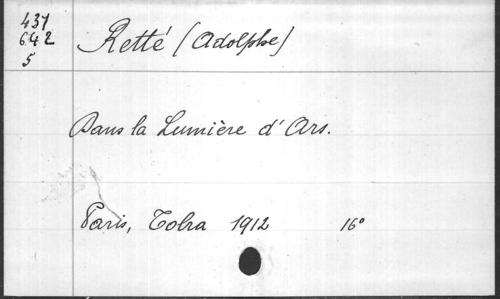 437
642
5
Retté (Adolphe)
Dans la Lumière d'Ars.
Paris, Tolra 1912 16°